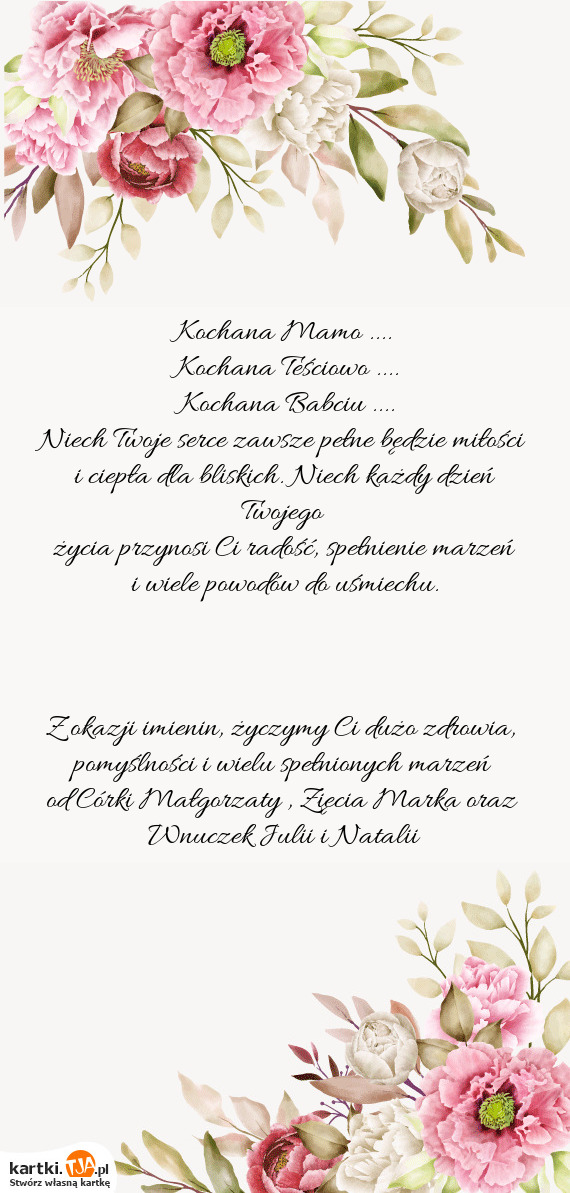 Kochana Mamo ....
Kochana Teściowo ....
Kochana Babciu ....
Niech Twoje serce zawsze pełne będzie miłości
i ciepła dla bliskich. Niech każdy dzień
Twojego
życia przynosi Ci radość, spełnienie marzeń
i wiele powodów do uśmiechu.
Z okazji imienin, życzymy Ci dużo zdrowia,
pomyślności i wielu spełnionych marzeń
od Córki Małgorzaty , Zięcia Marka oraz
Wnuczek Julii i Natalii
kartki.TJA.pl
Stwórz własną kartkę